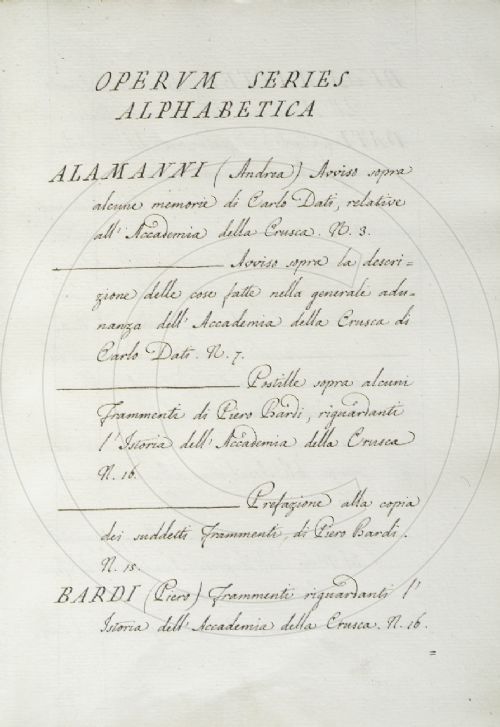 OPERVM SERIES
ALPHABETICA
ALAMANNI (Andrea) Avviso sopra
alcune memorie di Carlo Dati, relative
all' Accademia della Crusca. N. 3.
Avviso sopra la descri-
zione delle cose fatte nella generale adu-
nanza dell' Accademia della Crusca di
Carlo Dati. N. 7.
Postille sopra alcuni
Frammenti di Piero Bardi, riguardanti
l' Istoria dell' Accademia della Crusca
N. 16.
Prefazione alla copia
dei suddetti Frammenti, di Piero Bardi.
N. 15.
BARDI (Piero) Frammenti riguardanti l'
Istoria dell' Accademia della Crusca. N. 16.